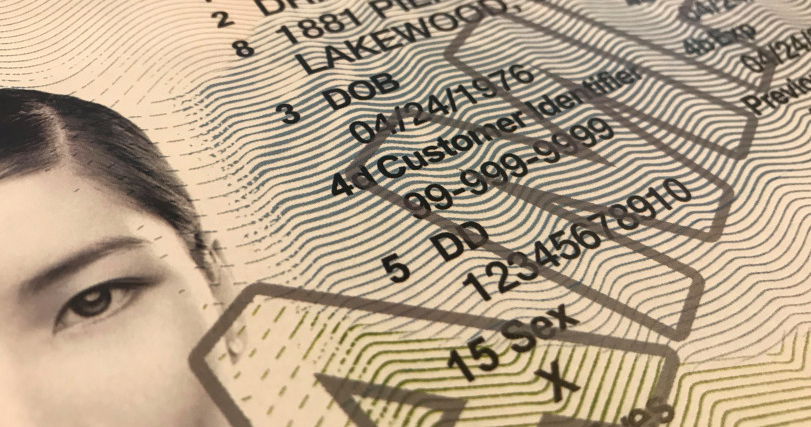 2
8 1881 PIE
LAKEWOOD,
3 DOB
04/24/1976
4d Customer Identifier
99-999-9999
5 DD
12345678910
15 Sex
X
4b Exp
04/24/
Previ